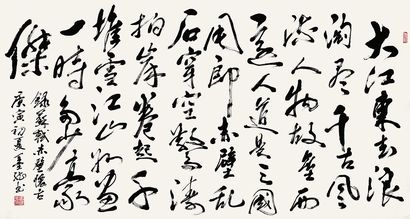 大江東去浪
淘盡千古風
流人物故壘西
邊人道是三國
周郎赤壁亂
石穿空驚濤
拍岸卷起千
堆雪江山如畫
一時多少豪
傑
錄蘇軾赤壁懷古
庚寅初夏